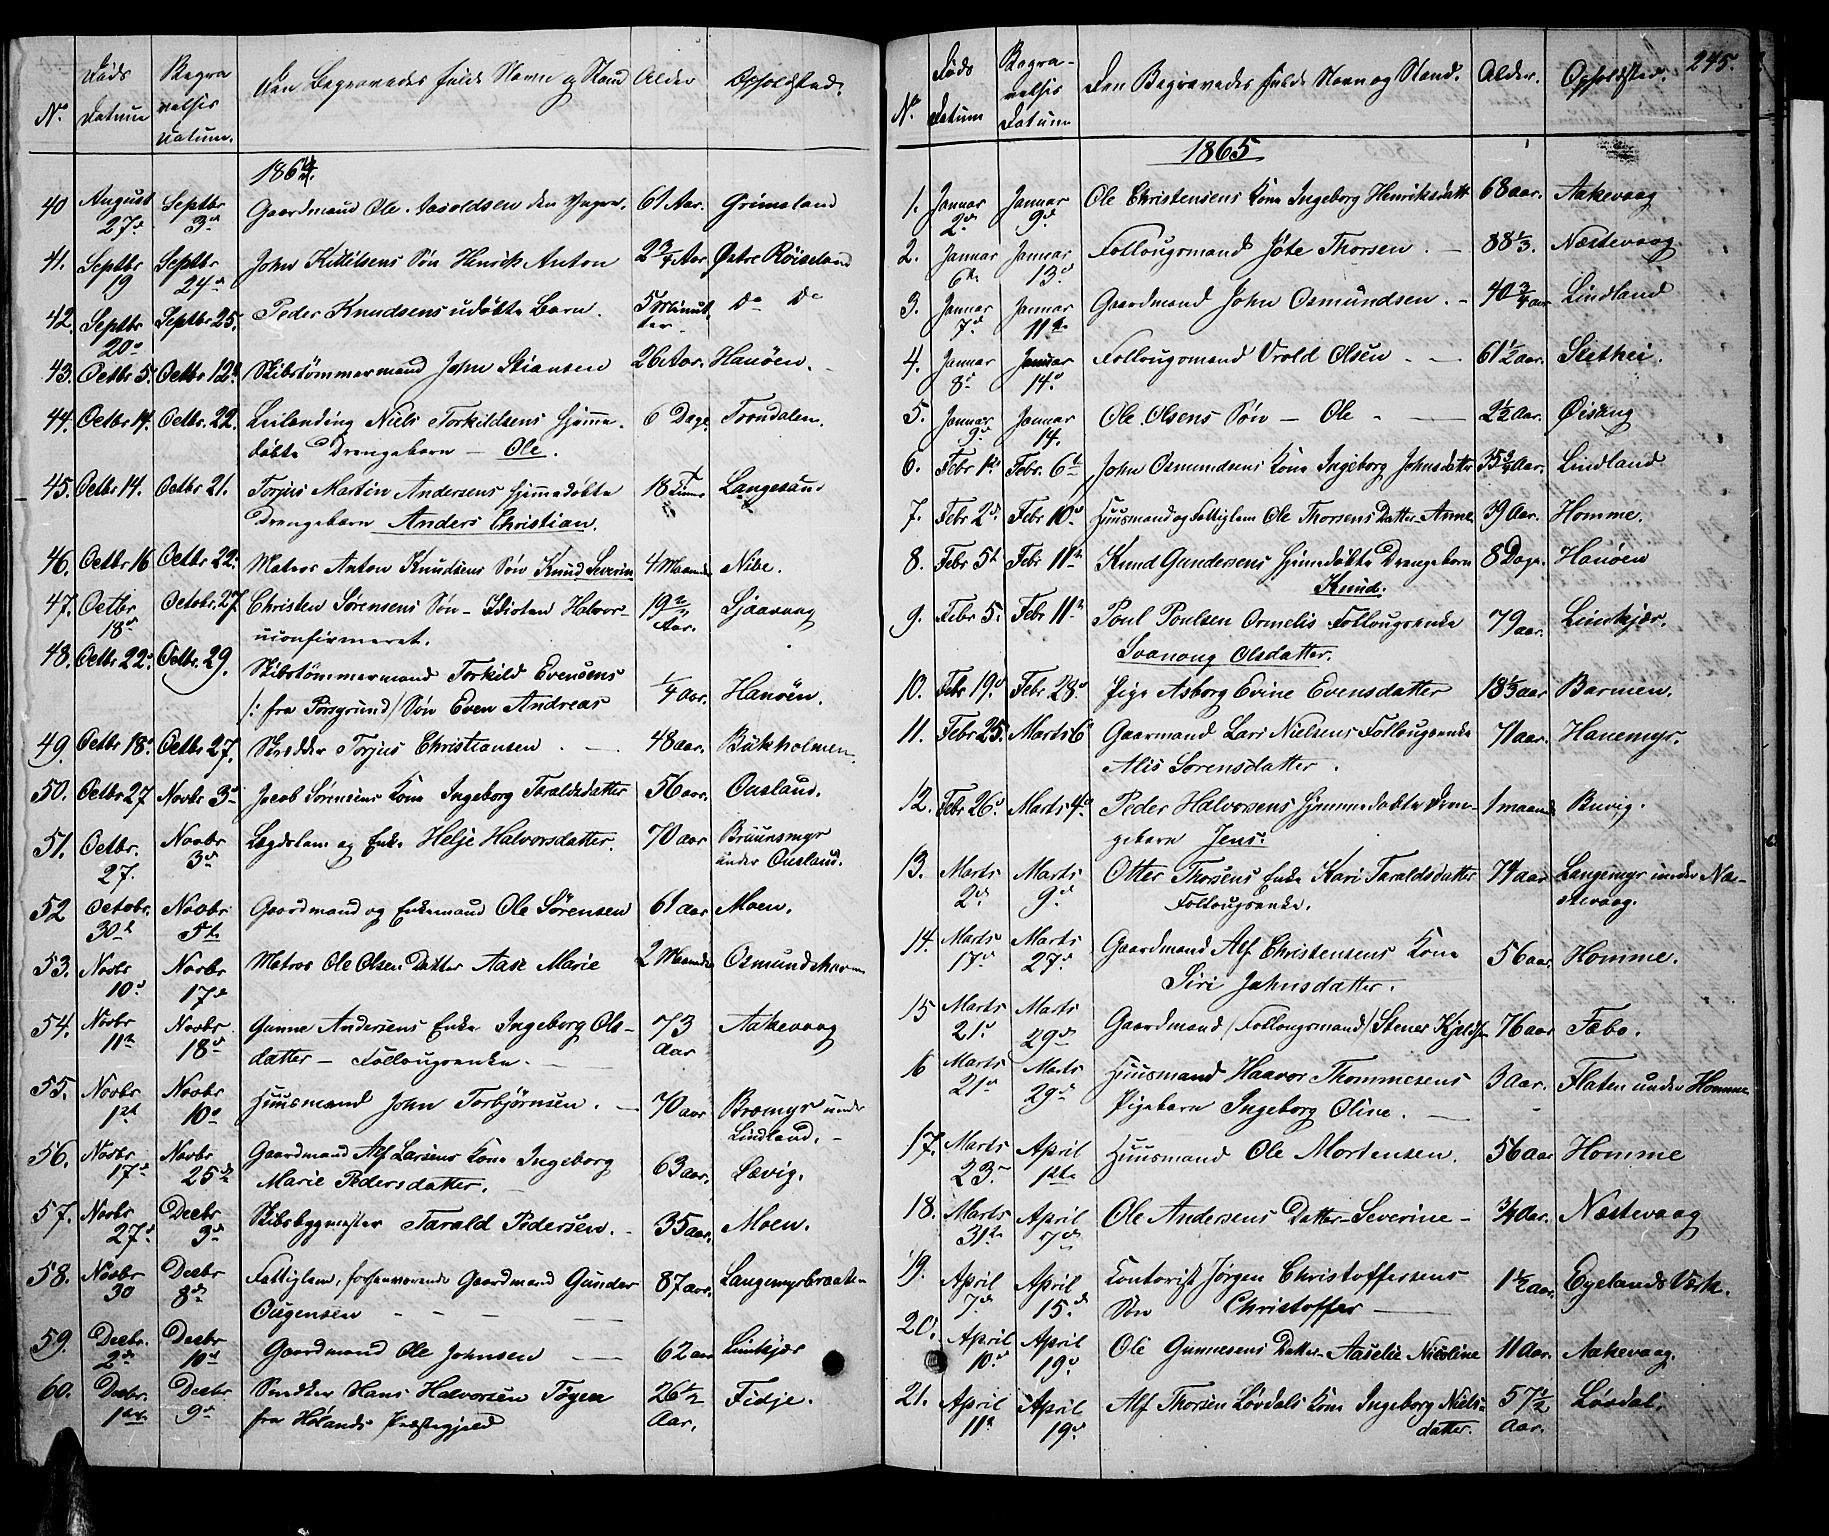 No. Døds Datum Begravelses Datum. Den Begravedes fulde Navn og Stand Alder Opholdsted.
1864.
40 August 27de Septbr 3d Gaardmand Ole Aasoldsen den Yngre. 61 Aar. Grimeland
41. Septbr 19 Septbr 24d John Kittilsens Søn Henrik Anton 2 3/4 Aar Østre Röiseland
42. Septbr 20de Septbr 25. Peder Knudsens udøbte Barn. 5 Minutter Do Do
43. Octbr 5. Octbr 12te Skibstømmermand John Stiansen 26 Aar. Hanöen.
44. Octbr 14. Octbr 22. Leilænding Niels Torkildsens hjemme-
døbte Drengebarn — Ole. 6 Dage. Trondalen.
45. Octbr 14. Octbr 21. Torjus Martin Andersens hjemmedøbte
Drengebarn Anders Christian. 18 Timer Langesund
46. Octbr 16 Octbr 22. Matros Anton Knudsens Søn Knud Severin 4 Maaneder Nibe.
47. Octbr 18d Octobr. 27 Christen Sørensens Søn — Idioten Halvor —
uconfirmeret. 19 Aar. Sjaavaag
48. Octbr 22. Octbr. 29. Skibstømmermand Torkild Evensens
/: fra Porsgrund/ Søn Even Andreas 1/4 Aar. Hanöen.
49. Octbr 18. Octbr 27. Skrædder Torjus Christiansen. 48 aar. Bukholmen.
50. Octbr 27 Novbr 3d Jacob Sørensens Kone Ingeborg Taraldsdatter 56 aar. Ousland.
51. Octbr. 27. Novbr 3d Lægdslem og Enke Helje Halvorsdatter. 70 aar Bruunsmyr
under Ousland.
52 Octobr. 30te Novbr 5te Gaardmand og Enkemand Ole Sørensen 61 aar Moen.
53. Novbr 10d Novbr 17de Matros Ole Olsen Datter Aase Marie 2 Maaneder Osmundshavn
54. Novbr 11te Novbr 18d Gunne Andersens Enke Ingeborg Ols-
datter — Follougsenke. 73 Aar Aakevaag
55. Novbr 1st Novbr 10d Huusmand John Torbjørnsen. 70 aar Bromyr under
Lindland.
56. Novbr 17d Novbr 25de Gaardmand Alf Larsens Kone Ingeborg
Marie Pedersdatter. 63 aar. Lævig.
57. Novbr 27d Decbr 3d Skibsbygmester Tarald Pedersen. 35 aar. Moen.
58. Novbr 30 Decbr 8de Fattiglem, forhenværende Gaardmand Gunder
Ougensen 87 aar. Langemyrbraaten
59. Decbr. 2de Decbr 10d Gaardmand Ole Johnsen 62 aar Linkjær
60. Decbr. 1ste Decbr. 9d Snedker Hans Halvorsen Tøgen
fra Hølands Præstegjeld 26 1/2 Aar. Fidje.
245.
No. Døds Datum Begravelsis Datum Den Begravedes fulde Navn og Stand. Alder. Opholdsted.
1865
1. Januar 2d Januar 9d Ole Christensens Kone Ingeborg Henriksdatt 68 aar. Aakevaag
2. Januar 6te Januar 13d Follougsmand Jöte Thorsen. 88 1/3. Næstevaag.
3. Januar 7d Januar 11te Gaardmand John Osmundsen. 40 3/4 aar Lindland
4. Januar 8d Januar 14d Follougsmand Vrold Olsen 61 1/2 aar. Stethei.
5. Januar 9d Januar 14. Ole Olsens Søn — Ole 2 1/2 Aar. Øisang
6. Febr 1ste Febr. 6te John Osmundsens Kone Ingeborg Johnsdatter 35 3/4 Aar. Lindland
7. Febr 2d Febr 10d Huusmand og Fattiglem Ole Thorsens Datter Anne 39 Aar. Homme.
8. Febr 5te Febr 11te Knud Gundersens hjemmedøbte Drengebarn
Knud. 8 Dage. Hanöen
9. Febr 5. Febr 11te Poul Poulsen Ormelis Follougsenke
Svanoug Olsdatter. 79 aar. Linkjær.
10. Febr 19d Febr 28d Pige Asborg Evine Evensdatter 18 1/3 aar Barmen.
11. Febr 25. Marts 6 Gaarmand Lars Nielsens Follougsenke
Alis Sørensdatter. 71 aar. Hanemyr.
12. Febr 26d Marts 4d Peder Halvorsens hjemmedøbte Dren-
gebarn Jens. 1 maaned Buvig.
13. Marts 2d Marts 9d Otter Thorsens Enke Kari Taraldsdatter
Follougsenke. 74 aar Langemyr under Næ-
stevaag.
14. Marts 17d Marts 27d Gaardmand Alf Christensens Kone
Siri Jahnsdatter. 56 aar. Homme.
15 Marts 21d Marts 29de Gaardmand /Follougsmand/ Stener Kjelds. 76 aar Fæbo.
16 Marts 21d Marts 29d Huusmand Haavor Thommesens
Pigebarn Ingeborg Oline. 3 Aar. Flaten under Homme
17. Marts 23. April 1ste Huusmand Ole Mortensen. 56 aar Homme
18. Marts 31te April 7de Ole Andersens Datter Severine 3/4 Aar. Næstevaag
19. April 7de April 15de Kontorist Jörgen Christoffersens
Søn Christoffer 1 1/2 aar. Egelands Værk.
20. April 10d April 19d Ole Gunnesens Datter Aaselie Nicoline 11 Aar. Aakevaag.
21. April 11te April 19d Alf Thorsen Løvdals Kone Ingeborg Niels-
datter. 57 1/2 Aar. Løvdal.